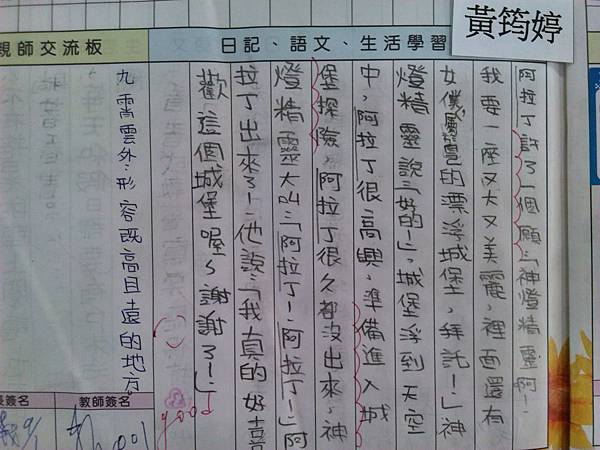 黃筠婷
日記、語文、生活學習
親師交流板
阿拉丁許了一個願:「神燈精靈阿!
我要一座又大又美麗,裡面還有
女僕的漂浮城堡,拜託!」神
燈精靈說:「好的!」,城堡浮到天空
中,阿拉丁很高興,準備進入城
堡探險,阿拉丁很久都沒出來,神
燈精靈大叫:「阿拉丁!阿拉丁!」阿
拉丁出來了!他說:「我真的好喜
歡這個城堡喔~謝謝了!」
good
九霄雲外:形容既高且遠的地方。
長簽名
教師簽名